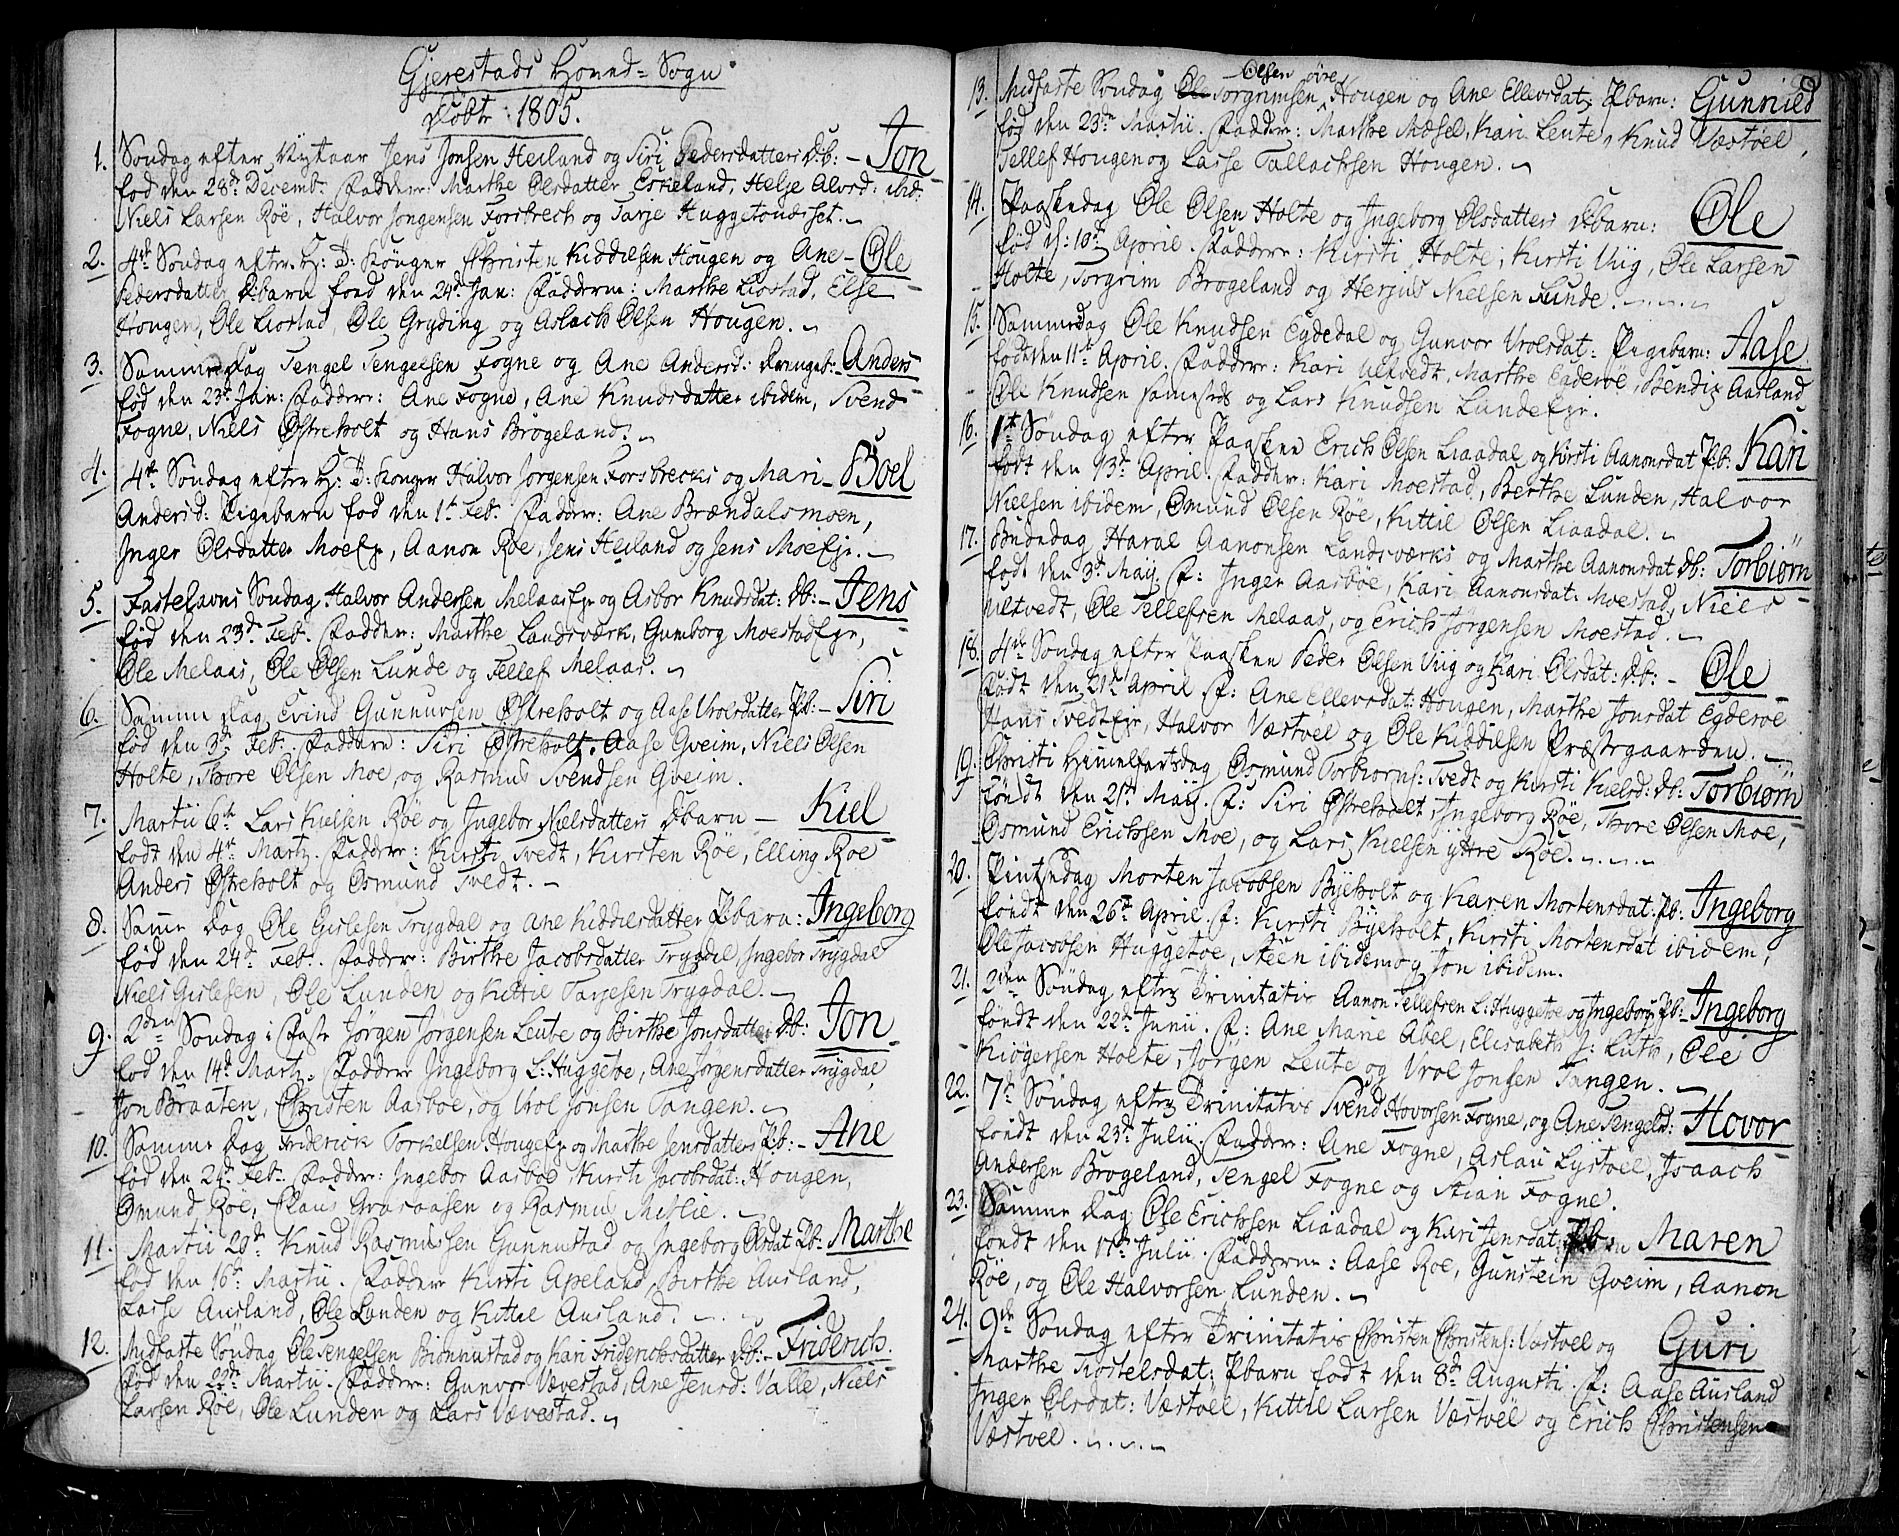 Gjerestads Hoved-Sogn
døbte 1805.
1. Søndag efter Nytaar Jens Jonsen Heiland og Siri Pedersdatters Db: – Jon
fød den 28d. Decemb. Faddere: Marthe Olsdatter Eskeland, Helje Alvsd: ibid:
Niels Larsen Røe, Halvor Jørgensen Forsbrech og Tarje Huggetondsset.
2. 4de Søndag efter H: 3 Konger Christen Kiddilsen Hougen og Ane – Ole
Pedersdatter Dbarn fød den 24d. Jan: Faddere: Marthe Liostad, Else
Hougen, Ole Liostad, Ole Gryting og Aslach Olsen Hougen.
3. Samme Dag Tengel Tengelsen Fogne og Ane Andersd: Drengeb: Anders
fød den 23d. Jan: Faddere: Ane Fogne, Ane Knudsdatter ibidem, Svend
Fogne, Niels Østreholt og Hans Brøgeland.
4. 4de Søndag efter H: 3 Konger Halvor Jørgensen Forsbrecks og Mari – Boel
Andersd: Pigebarn fød den 1st Feb. Fadder: Ane Brændalsmoen,
Inger Olsdatter Moe Ejr, Aanon Røe, Jens Heiland og Jens Moe Ejr.
5. Fastelavns Søndag Halvor Andersen Melaas Ejr og Asbor Knudsdat: Db: – Jens
fød den 23d. Feb. Fadder: Marthe Landsværk, Gumborg Moestad Ejr,
Ole Melaas, Ole Olsen Lunde og Tellef Melaas.
6. Samme Dag Evind Gunnufsen Østreholt og Aase Vrolsdatter Pb: – Siri
fød den 3d. Feb. Faddere: Siri Østreholt, Aase Gveim, Niels Olsen
Holte, Thore Olsen Moe og Rasmus Svendsen Gveim.
7. Martii 6te Lars Kielsen Røe og Ingebor Nielsdatters Dbarn – Kiel
født den 4de Martz. Fadder: Kirsti Tvedt, Kirsten Røe, Elling Røe
Anders Østreholt og Osmund Tvedt.
8. Samme Dag Ole Gislesen Trygdal og Ane Kiddilsdatter Pbarn: Ingeborg
fød den 24d. Feb. Fadder: Birthe Jacobsdatter Trygdal, Ingebor Trygdal
Niels Gislesen, Ole Lunden og Kittil Tarjesen Trygdal.
9. 2den Søndag i Faste Jørgen Jørgensen Leute og Birthe Jonsdatter Db: Jon
fød den 14d. Martz. Fadder Ingeborg L: Huggetøe, Ane Jørgensdatter Trygdal,
Jon Braaten, Christen Aasbøe, og Vrol Jonsen Tangen.
10. Samme Dag Friderick Torkelsen Houge Ejr og Marthe Jensdatters Pb: – Ane
fød den 24d. Feb. Fadder: Ingebor Aasbøe, Kirsti Jacobsdat: Hougen,
Osmund Røe, Claus Graasen og Rasmus Mitlie.
11. Martii 29d. Knud Rasmussen Gunnustad og Ingeborg Olsdat Pb: Marthe
fød den 16d. Martii. Fadder Kirsti Apeland, Birthe Ausland,
Lasse Ausland, Ole Lunden og Kittil Ausland.
12. Midfaste Søndag Ole Tengelsen Biønnustad og Kari Friderichsdatter Db: – Friderich.
fød den 22de Martii. Fadder: Gunvor Vævestad, Ane Jensd: Valle, Niels
Larsen Røe, Ole Lunden og Lars Vævestad.
13. Midfaste Søndag Ole Torgrimsen Olsen øvre Hougen og Ane Ellevsdat: Pbarn: Gunnild
fød den 23de Martii. Fadder: Marthe Mæsel, Kari Leute, Knud Væstøel,
Tellef Hougen og Lasse Tallachsen Hougen.
14. Paaskedag Ole Olsen Holte og Ingeborg Olsdatters Dbarn: Ole
fød d: 10d. April. Fadder: Kirsti Holte, Kirsti Viig, Ole Larsen
Holte, Torgrim Brøgeland og Herjus Nielsen Lunde.
15. Samme dag Ole Knudsen Egdedal og Gunvor Vrolsdat: Pigebarn: Aase
født den 11te April. Fadder: Kari Ultvedt, Marthe Egderøe, Bendix Aasland
Ole Knudsen samesteds og Lars Knudsen Lunde Ejr.
16. 1st Søndag efter Paaske Erich Olsen Liaadal og Kirsti Aanonsdat Pb: Kari
født den 13d. April. Fadder: Kari Moestad, Berthe Lunden, Halvor
Nielsen ibidem, Osmund Olsen Røe, Kittil Olsen Liaadal.
17. Bededag Haral Aanonsen Landsværks og Marthe Aanonsdat Db: Torbiørn
født den 3d. Maij. F: Inger Aasbøe, Kari Aanonsdat: Moestad, Niels
Ultvedt, Ole Tellefsen Melaas, og Erich Jørgensen Moestad.
18. 4de Søndag efter Paaske Peder Olsen Viig og Kari Olsdat: Db: – Ole
Født den 21d. April F: Ane Ellevsdat: Hougen, Marthe Jonsdat Egderøe
Hans Tvedt Ejr, Halvor Væstøel og Ole Kiddilsen Præstegaarden.
19. Christi Himmelfartsdag Osmund Torbiørns: Tvedt og Kirsti Kielsd: Db: Torbiørn
født den 21d. Maij. F: Siri Østreholt, Ingeborg Røe, Thore Olsen Moe,
Osmund Erichsen Moe, og Lars Kielsen yttre Røe.
20. Pintsedag Morten Jacobsen Byeholt og Karen Mortensdat. Pb: Ingeborg
født den 26d. April. F: Kirsti Byeholt, Kirsti Mortensdat ibidem,
Ole Jacobsen Huggetøe, Steen ibidem og Jon ibidem.
21. 2den Søndag efter Trinitatis Aanon Tellefsen L: Huggetøe og Ingeborg Pb: – Ingeborg
født den 22d. Junii. F: Ane Marie Abel, Elisabeth J: Luth, Ole
Kiøgersen Holte, Jørgen Leute og Vrol Jonsen Tangen.
22. 7d. Søndag efter Trinitatis Svend Hovorsen Fogne, og Ane Tengelsd: Hovor
født den 23d. Julii. Fadder: Ane Fogne, Aslau Lystøel, Isaach
Andersen Brøgeland, Tengel Fogne og Stian Fogne.
23. Samme Dag Ole Erichsen Liaadal og Kari Jensdat: Pb: Maren
født den 17d. Julii. Faddere: Aase Røe, Gunstein Gveim, Aanon
Røe, og Ole Halvorsen Lunden.
24. 9de Søndag efter Trinitatis Christen Christens: Væstøel og Guri
Marthe Kiøstelsdat: Pbarn født den 8d. Augusti. F: Aase Ausland
Inger Olsdat: Væstøel, Kittil Larsen Væstøel og Erich Christensen
Væstøel.